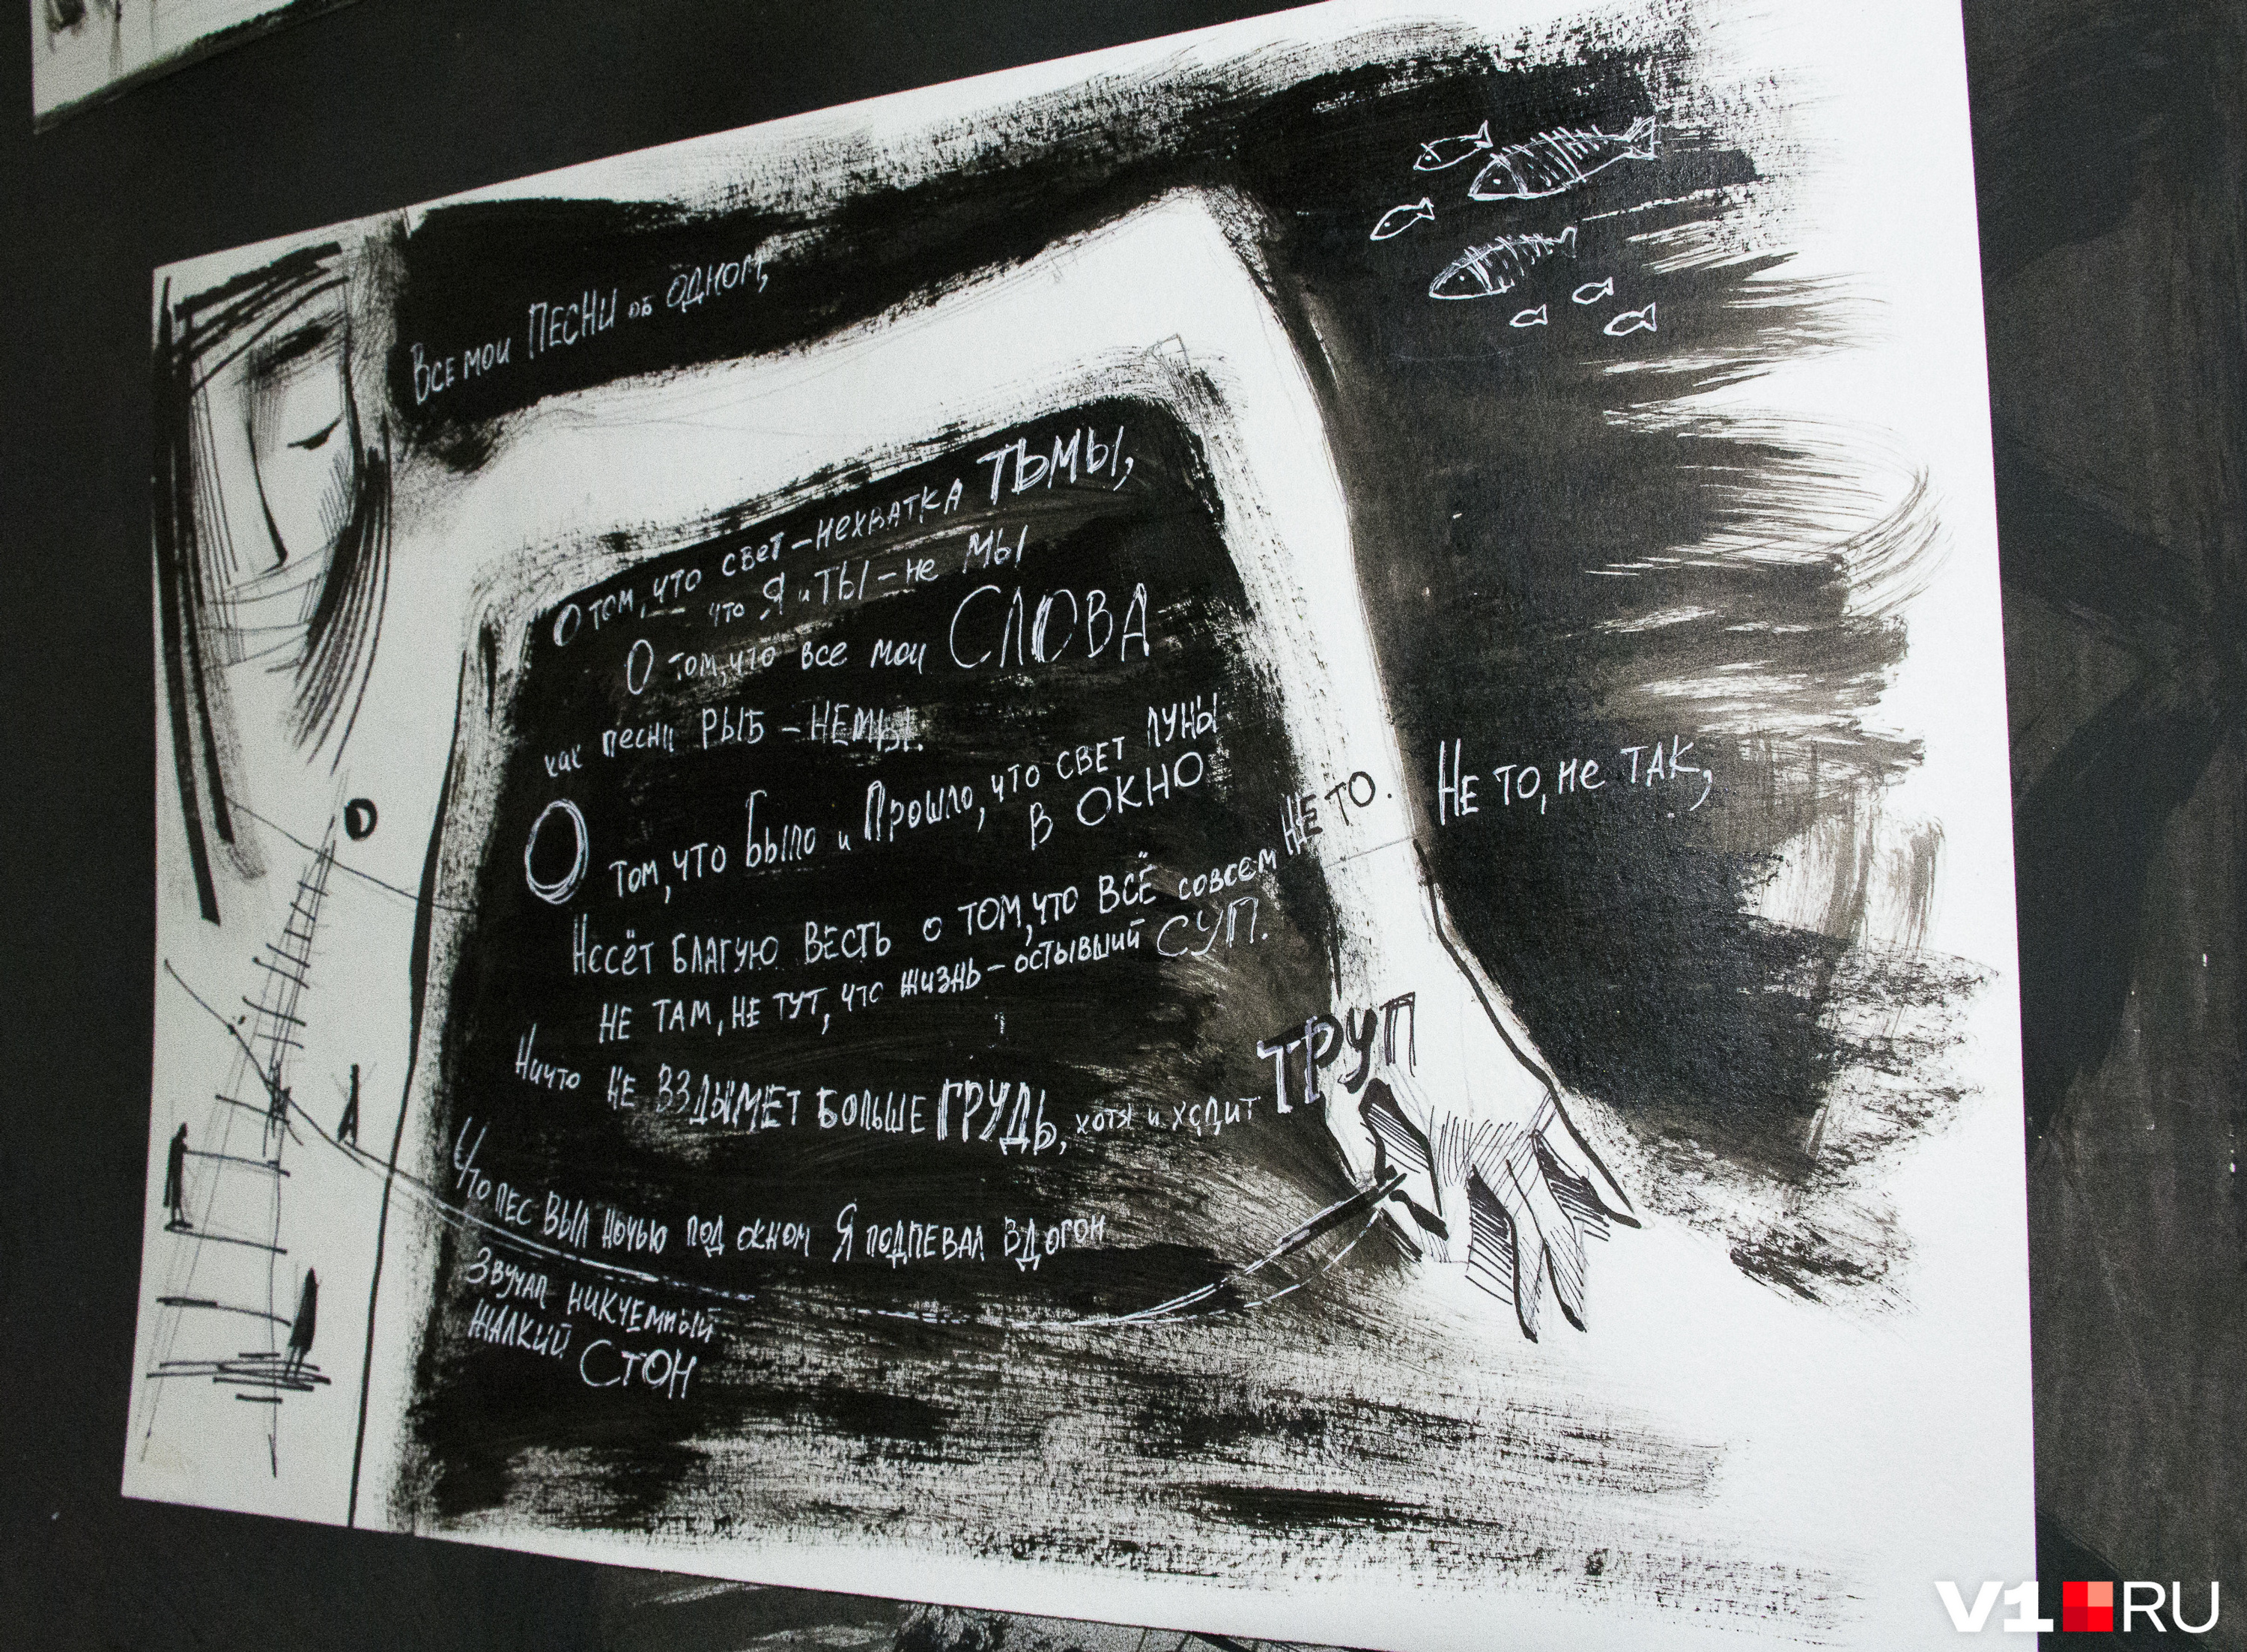 Все мои ПЕСНИ об ОДНОМ,
О том, что свет – нехватка ТЬМЫ,
что Я и ТЫ – не МЫ
О том, что все мои СЛОВА
как песни РЫБ – НЕМЫ.
О том, что Было и Прошло, что свет ЛУНЫ
В ОКНО
Несёт БЛАГУЮ ВЕСТЬ о ТОМ, что ВСЁ совсем НЕ ТО. Не то, не ТАК,
НЕ ТАМ, НЕ ТУТ, что жизнь – остывший СУП.
Ничто НЕ ВЗДЫМЕТ БОЛЬШЕ ГРУДЬ, хотя и ходит ТРУП
Что ПЕС ВЫЛ ночью под окном Я ПОДПЕВАЛ ВДОГОН
Звучал никчемный
ЖАЛКИЙ СТОН
V1 RU